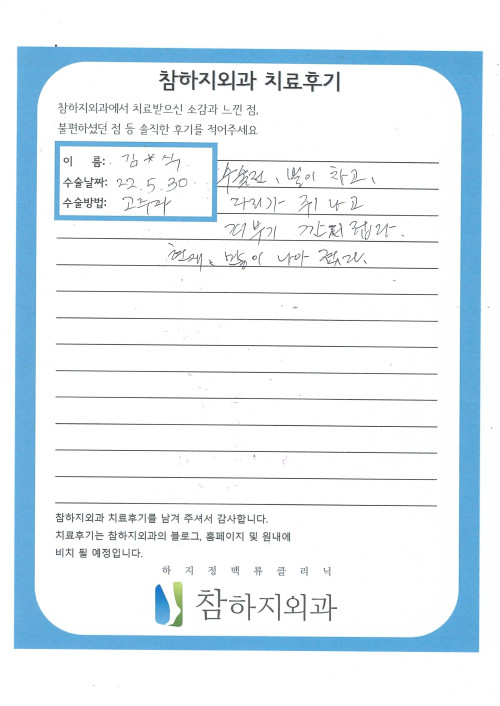 참하지외과 치료후기
참하지외과에서 치료받으신 소감과 느낀 점,
불편하셨던 점 등 솔직한 후기를 적어주세요
이 름: 김*식
수술날짜: 22.5.30
수술방법: 고주파
수술전, 발이 차고,
다리가 쥐 나고
피부가 간지럽다.
현재는 많이 나아 졌다.
참하지외과 치료후기를 남겨 주셔서 감사합니다.
치료후기는 참하지외과의 블로그, 홈페이지 및 원내에
비치 될 예정입니다.
하지정맥류클리닉
참하지외과